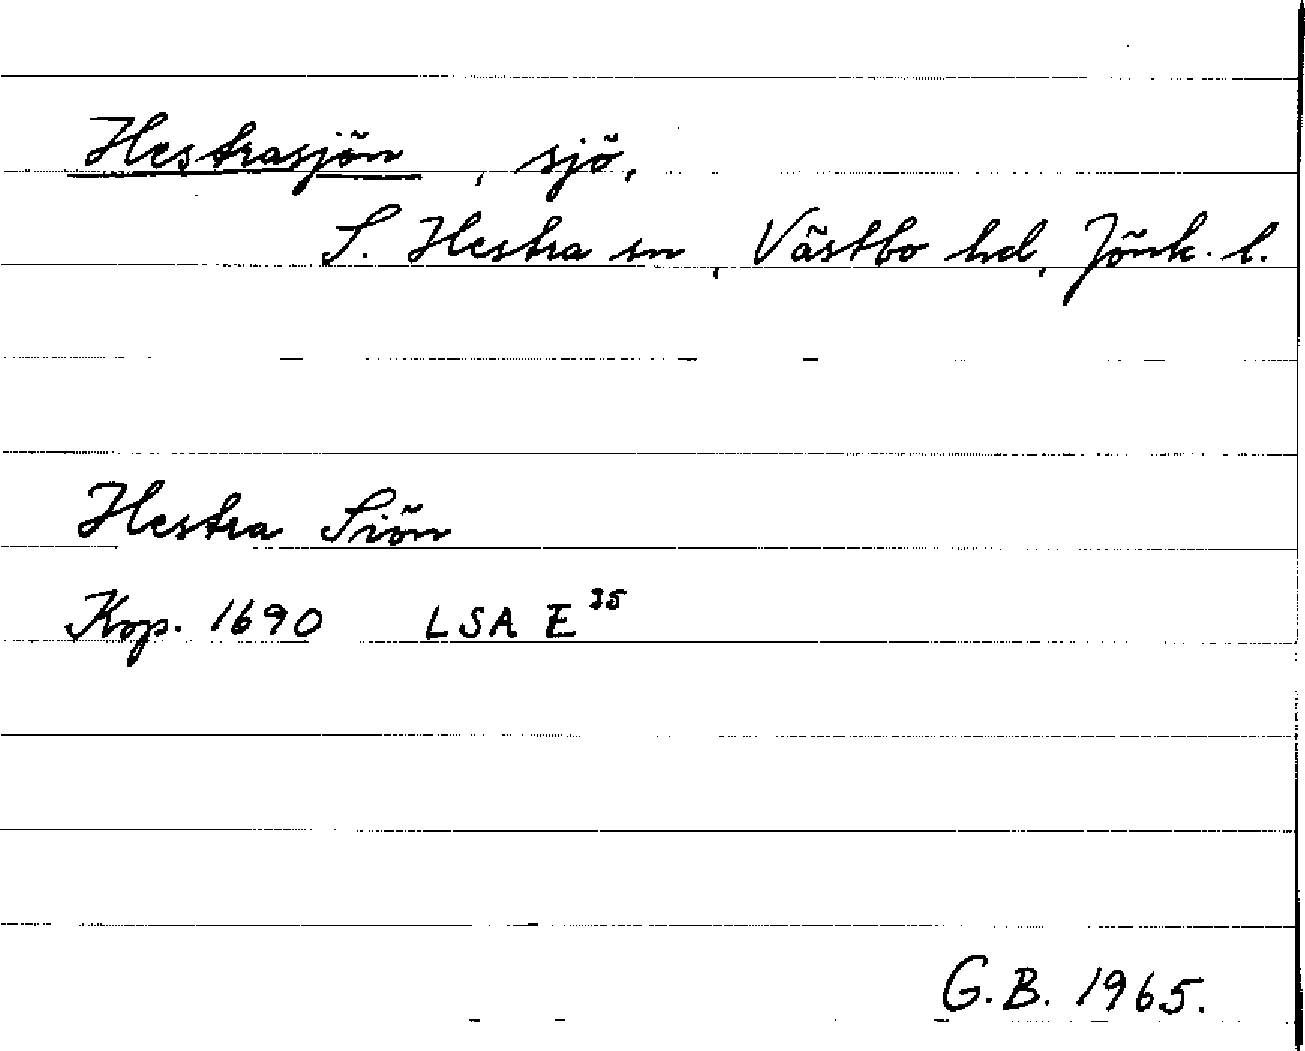 Hestrasjön, sjö,
S. Hestra sn, Västbo hd, Jönk. l.
Hestra Siön
Kop. 1690 LSA E³⁵
G.B. 1965.